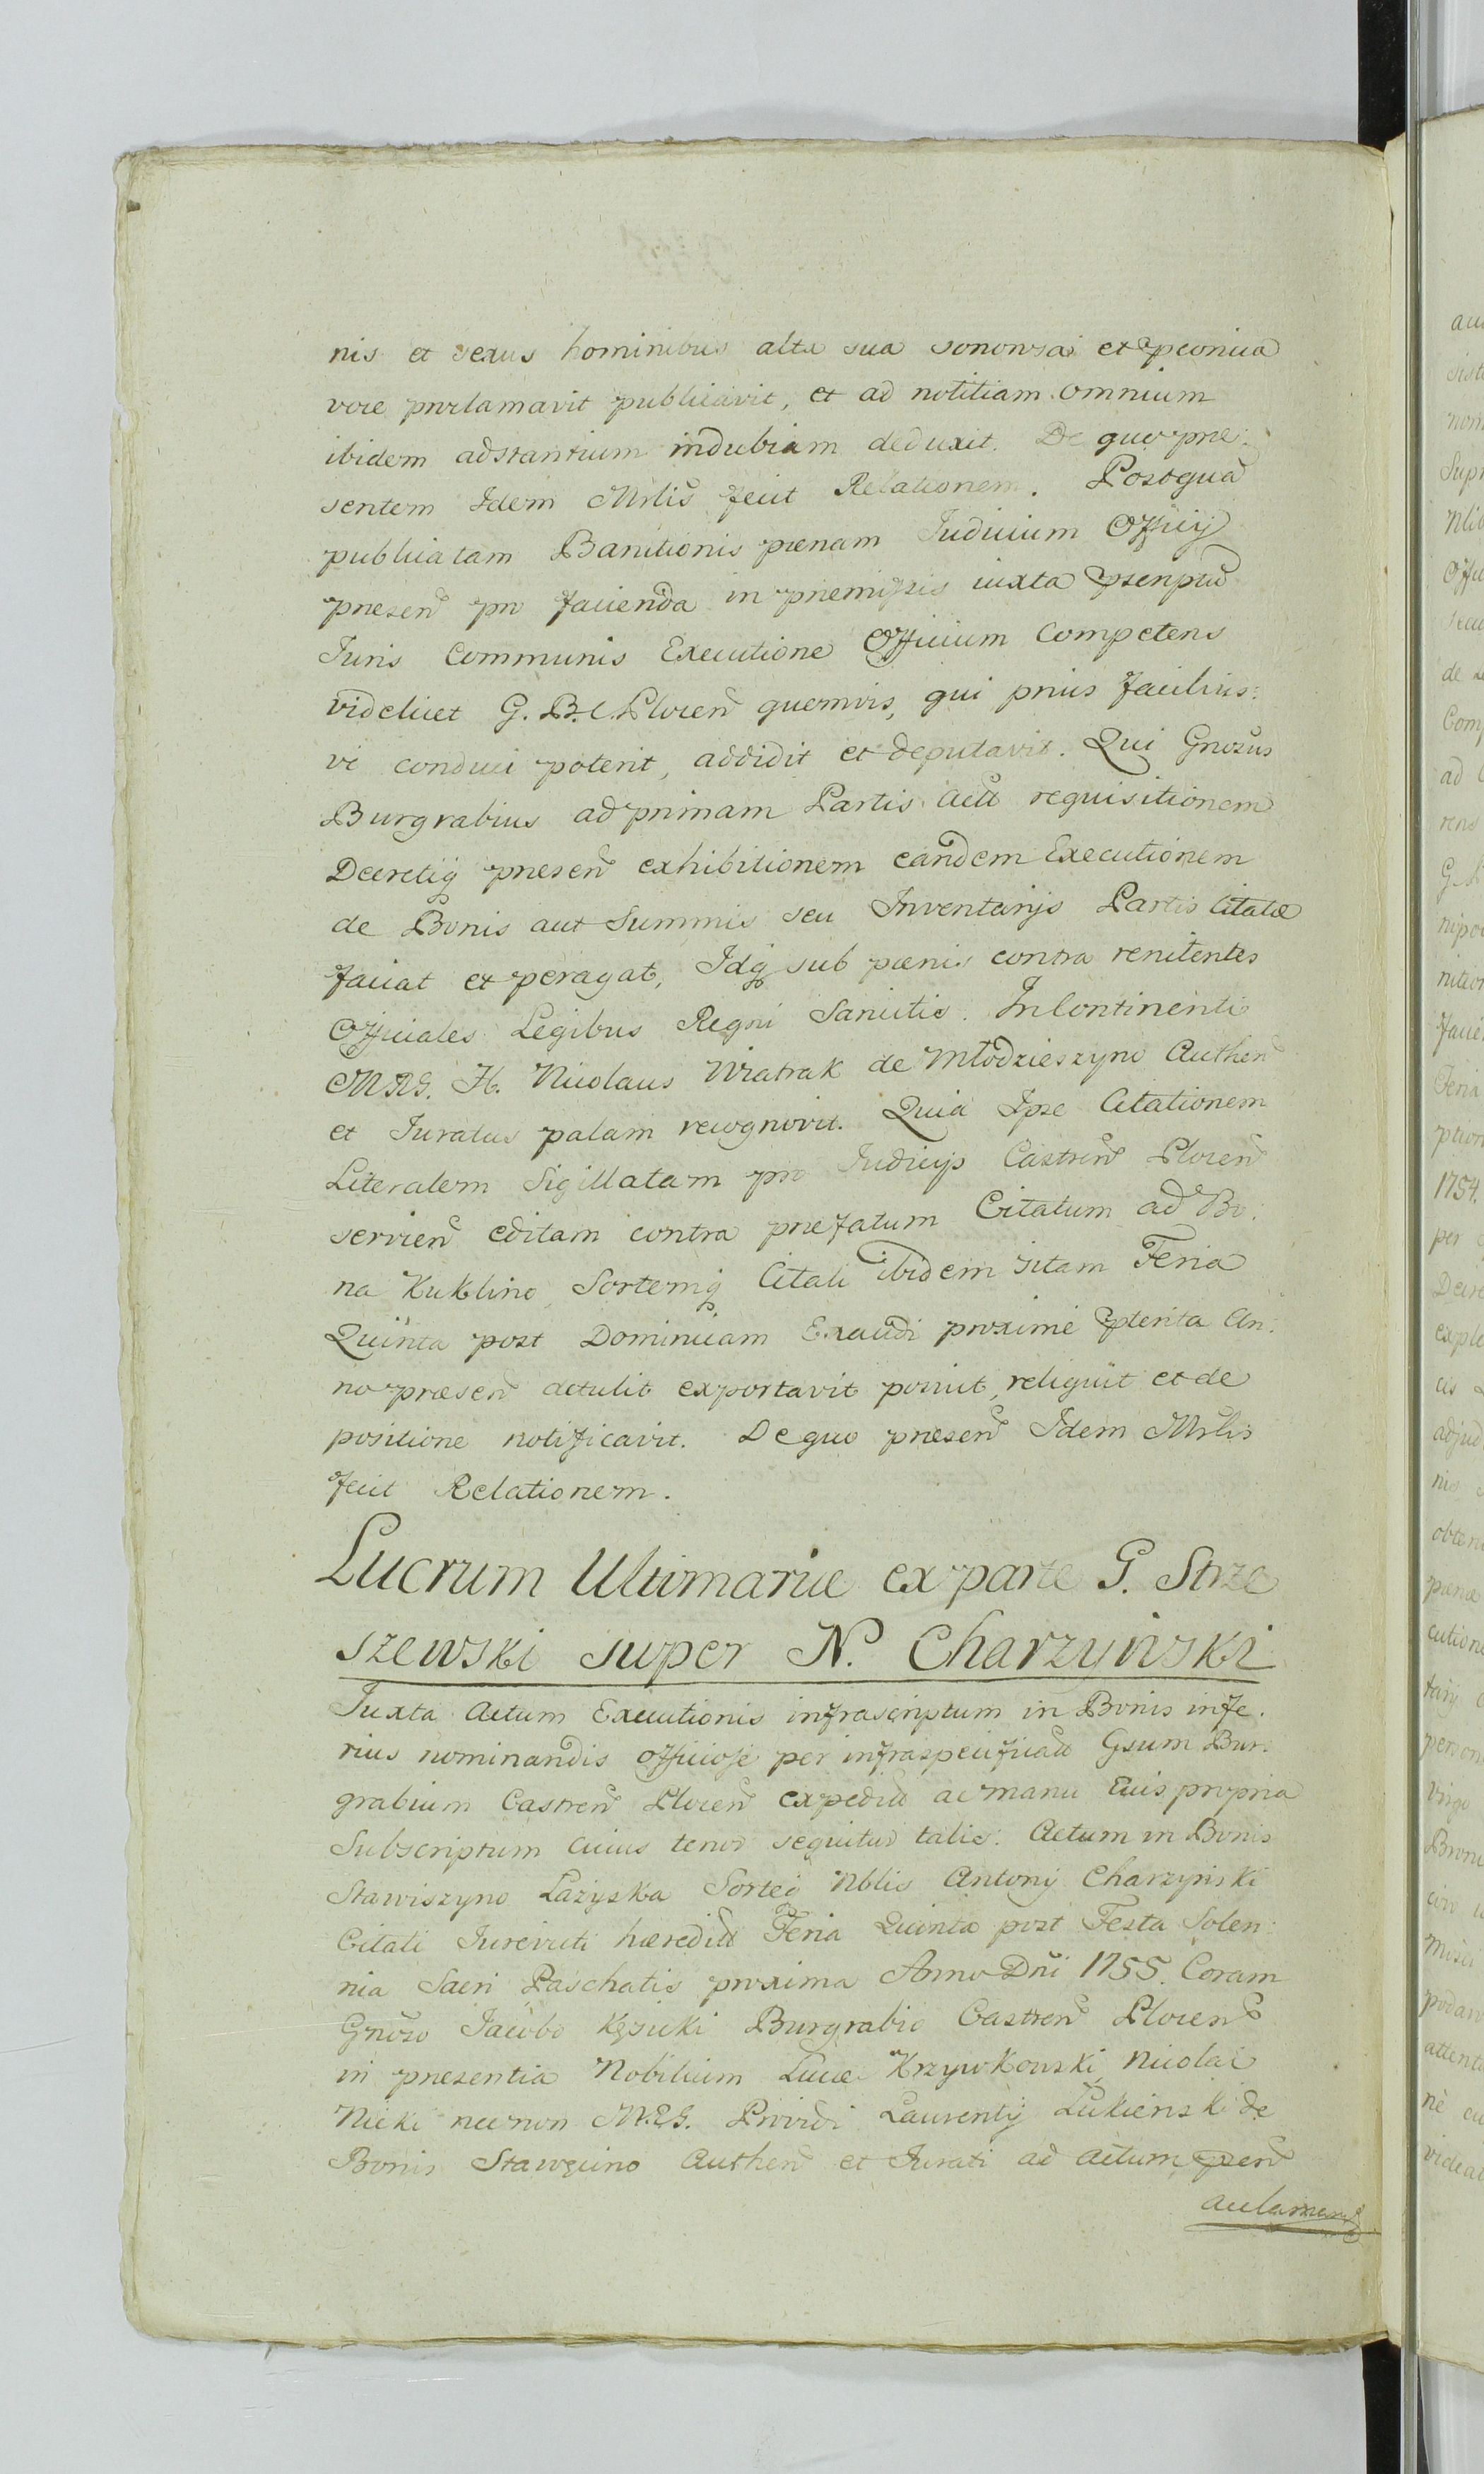 nis et sexus hominibus alta sua sonorosa et preconica
voce proclamavit publicavit, et ad notitiam omnium
ibidem adstantium indubiam deduxit. De quo præ:
sentem Idem Mrlis fecit Relationem. Postquā
publicatam Banitionis pænam Iudicium Officij
præsen pro facienda in præmissis iuxta pscriptū
Iuris Communis Executione Officium Competens
videlicet G. B. C. Plocen quemvis, qui prius facilius:
ve conduci poterit, addidit et deputavit. Qui Gnosus
Burgrabius ad primam Partis Act requisitionem
Decretiq præsen exhibitionem eandem Executionem
de Bonis aut Summis seu Inventarijs Partis Citatæ
faciat et peragat, Idq sub pænis contra renitentes
Officiales Legibus Regni Sancitis. In Continenti
MRG. H. Nicolaus Wiatrak de Młodzieszyno Authen
et Iuratus palam recognovit. Quia Ipse Citationem
Literalem Sigillatam pro Iudicijs Castren Plocen
servien editam contra præfatum Citatum ad Bo:
na Kuklino Sortemq Citati ibidem sitam Feria
Quinta post Dominicam Exaudi proxime pterita An:
no præsen detulit exportavit posuit, reliquit et de
positione notificavit. De quo præsen Idem Mrlis
fecit Relationem.
Lucrum Ultimariæ ex parte G. Strze
szewski super N. Charzyński
Iuxta Actum Executionis infrascriptum in Bonis infe:
rius nominandis officiose per infraspecificat Gsum Bur:
grabium Castren Plocen expedit ac manu Eius propria
Subscriptum cuius tenor sequitur talis: Actum in Bonis
Stawiszyno Łazyska Sorte Nblis Antonij Charzyński
Citati Iurevicti hæredit Feria Quinta post Festa Solen:
nia Sacri Paschatis proxima Anno Dni 1755. Coram
Gnoso Iacobo Kęsicki Burgrabio Castren Plocen
in præsentia Nobilium Lucæ Krzywkowski, Nicolai
Nicki necnon M.R.G. Providi Laurentij Lukienski de
Bonis Stawęcino Authen et Iurati ad actum psen